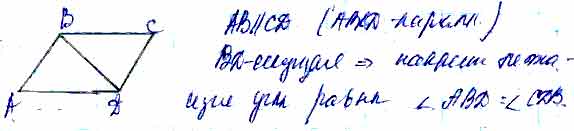 B C
AB||CD (ABCD-паралл.)
BD-секущая => накрест лежа-
A D
щие углы равны ∠ABD=∠CDB.